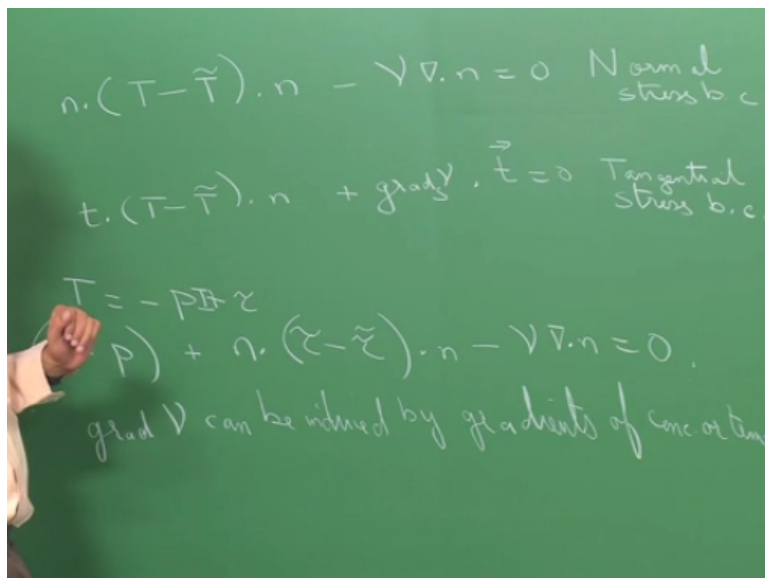 n.(T-T̃).n - γ∇.n=0 Normal
stress b.c
t.(T-T̃).n + gradsγ.t⃗=0 Tangential
stress b.c.
T=-pI+τ
p) + n.(τ-τ̃).n-γ∇.n=0.
grad γ can be induced by gradients of conc. or tem